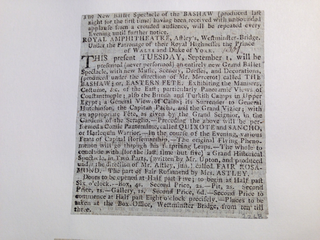 The New Easter Spectacle of the BASHAW (produced last
night for the first time) having been received with unbounded
applause from a crouded audience, will be repeated every
Evening until further notice.
ROYAL AMPHITHEATRE, Astley's, Westminster-Bridge.
Under the Patronage of their Royal Highnesses the Prince
of WALES and Duke of YORK.
THIS present TUESDAY, September 1, will be
presented (never performed) an entirely new Grand Ballet
Spectacle, with new Music, Scenery, Dresses, and Decorations,
(produced under the direction of Mr. Mercerot) called THE
BASHAW; or, EASTERN SPECTACLE: Exhibiting the Manners,
Costume, &c. of the East; particularly Panoramic Views of
Constantinople; also the British and Turkish Camps in Upper
Egypt; a General View of Cairo; its Surrender to General
Hutchinson, the Capitan Pacha, and the Grand Vizier; with
an appropriate Fête, as given by the Grand Seignior, in the
Gardens of the Seraglio.—Preceding the above will be per-
formed a Comic Pantomime, called QUIXOTE and SANCHO,
or Harlequin Warrior.—In the course of the Evening, various
Feats of Capital Horsemanship.—The original Flying Phenom-
enon will go through his surprising Leaps.—The whole to
conclude with (for the last time but five) a Grand Historical
Spectacle, in Two Parts, (written by Mr. Upton, and produced
under the direction of Mr. Astley, jun.) called FAIR ROSA-
MOND. The part of Fair Rosamond by Mrs. ASTLEY.
Doors to be opened at Half past Five; to begin at Half past
Six o'clock.—Box, 4s. Second Price, 2s.—Pit, 2s. Second
Price, 1s.—Gallery, 1s. Second Price, 6d.—Second Price to
commence at Half past Eight o'clock precisely.—Places to be
taken at the Box Office, Westminster Bridge, from ten till
three.